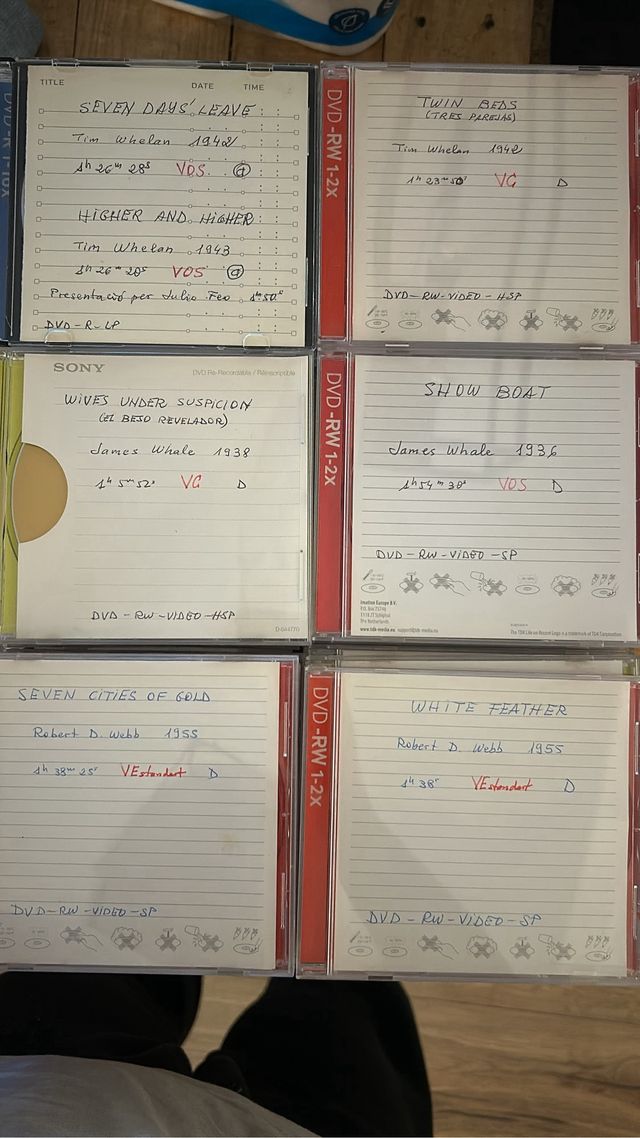 TITLE DATE TIME
SEVEN DAYS' LEAVE
Tim Whelan 1942
1h 26m 28s VOS @
HIGHER AND HIGHER
Tim Whelan 1943
1h 26m 20s VOS @
Presentació per Julio Feo 1m50s
DVD-R-LP
DVD-RW 1-2x
TWIN BEDS
(TRES PAREJAS)
Tim Whelan 1942
1h 23m 50s VC D
DVD-RW-VIDEO-HSP
SONY
DVD Re-Recordable / Réinscriptible
WIVES UNDER SUSPICION
(EL BESO REVELADOR)
James Whale 1938
1h 5m 52s VC D
DVD-RW-VIDEO-HSP
DVD-RW 1-2x
SHOW BOAT
James Whale 1936
1h 54m 30s VOS D
DVD-RW-VIDEO-SP
Imation Europe B.V.
The Netherlands
www.tdk-media.eu support@tdk-media.eu
The TDK Life on Record Logo is a trademark of TDK Corporation
SEVEN CITIES OF GOLD
Robert D. Webb 1955
1h 38m 25s VEstandart D
DVD-RW-VIDEO-SP
DVD-RW 1-2x
WHITE FEATHER
Robert D. Webb 1955
1h 38s VEstandart D
DVD-RW-VIDEO-SP